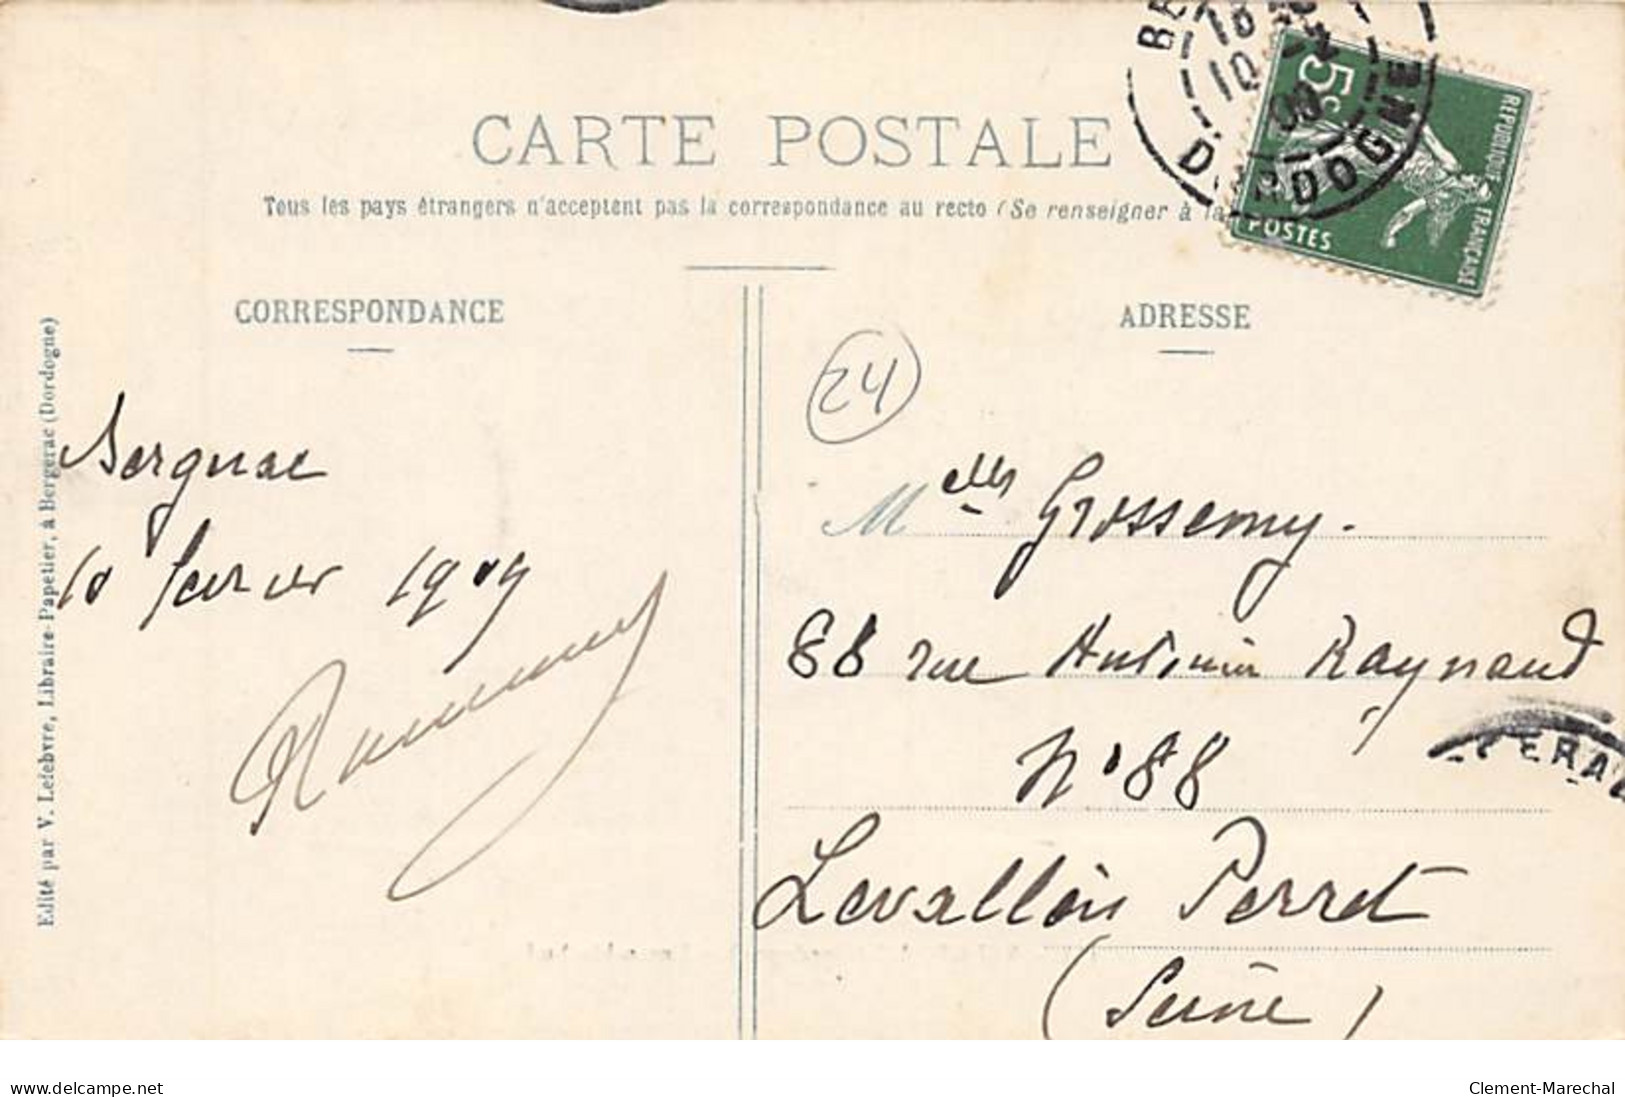 CARTE POSTALE
Tous les pays étrangers n'acceptent pas la correspondance au recto (Se renseigner à la
CORRESPONDANCE
ADRESSE
Edité par V. Lefebvre, Libraire-Papetier, à Bergerac (Dordogne)
5c
REPUBLIQUE FRANÇAISE
POSTES
18
10
09
DORDOGNE
24
10 février 1909
Melles Grossemy.
88 rue Antonin Raynaud
N° 88
Levallois Perret
(Seine)
ERAC
delcampe.net
Clement-Marechal